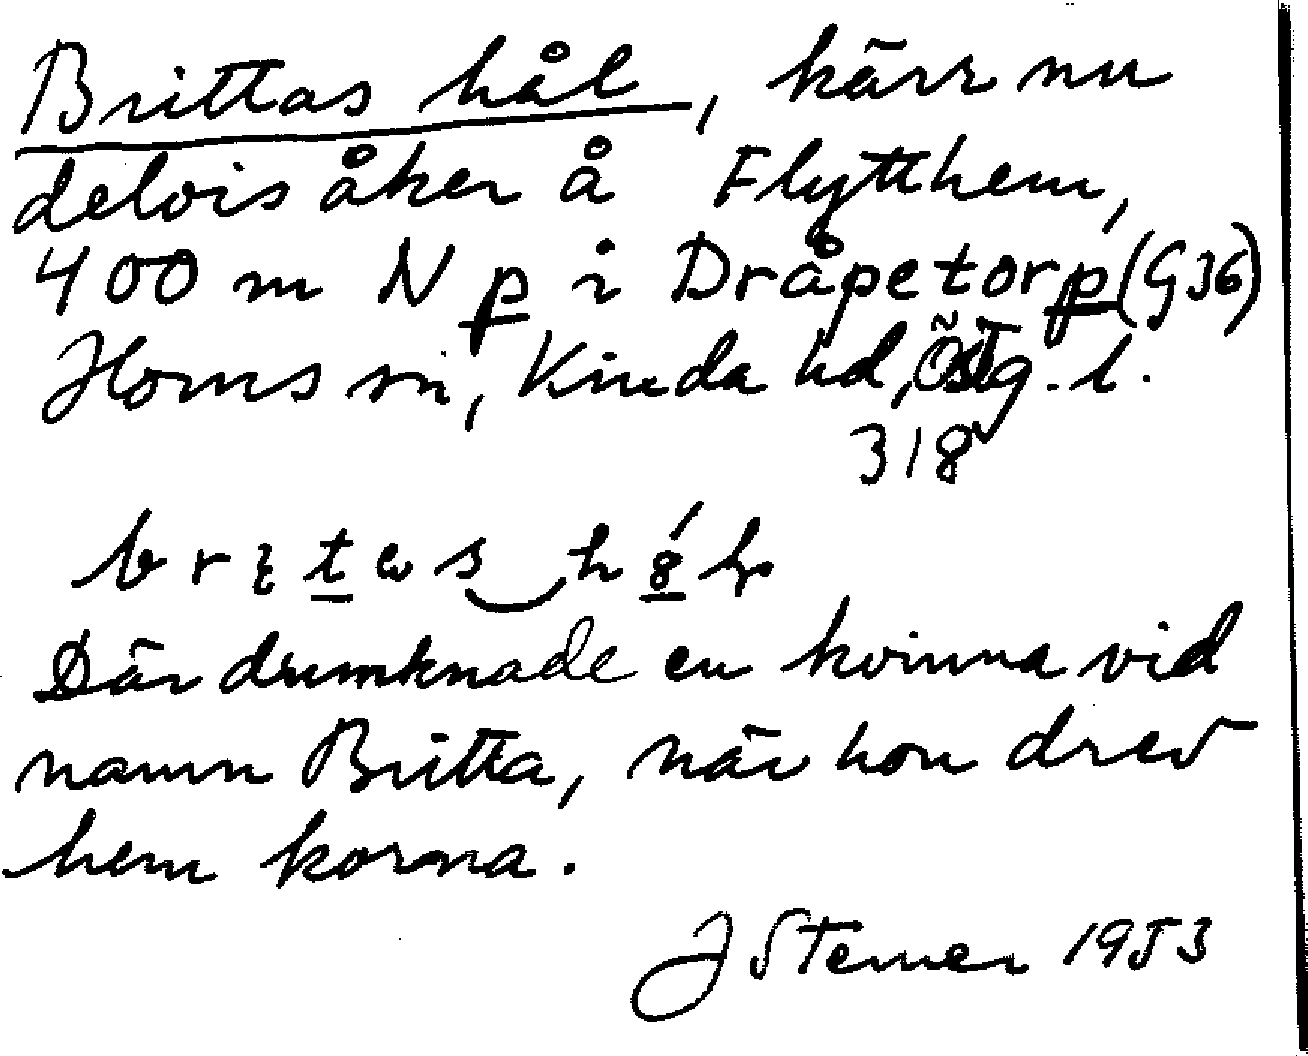 Brittas hål, kärr nu
delvis åker å Flytthem,
400 m N p i Dråpetorp (G36)
Horns sn, Kinda hd, Östg. l.
318
Där drunknade en kvinna vid
namn Britta, när hon drev
hem korna.
J Sterner 1953